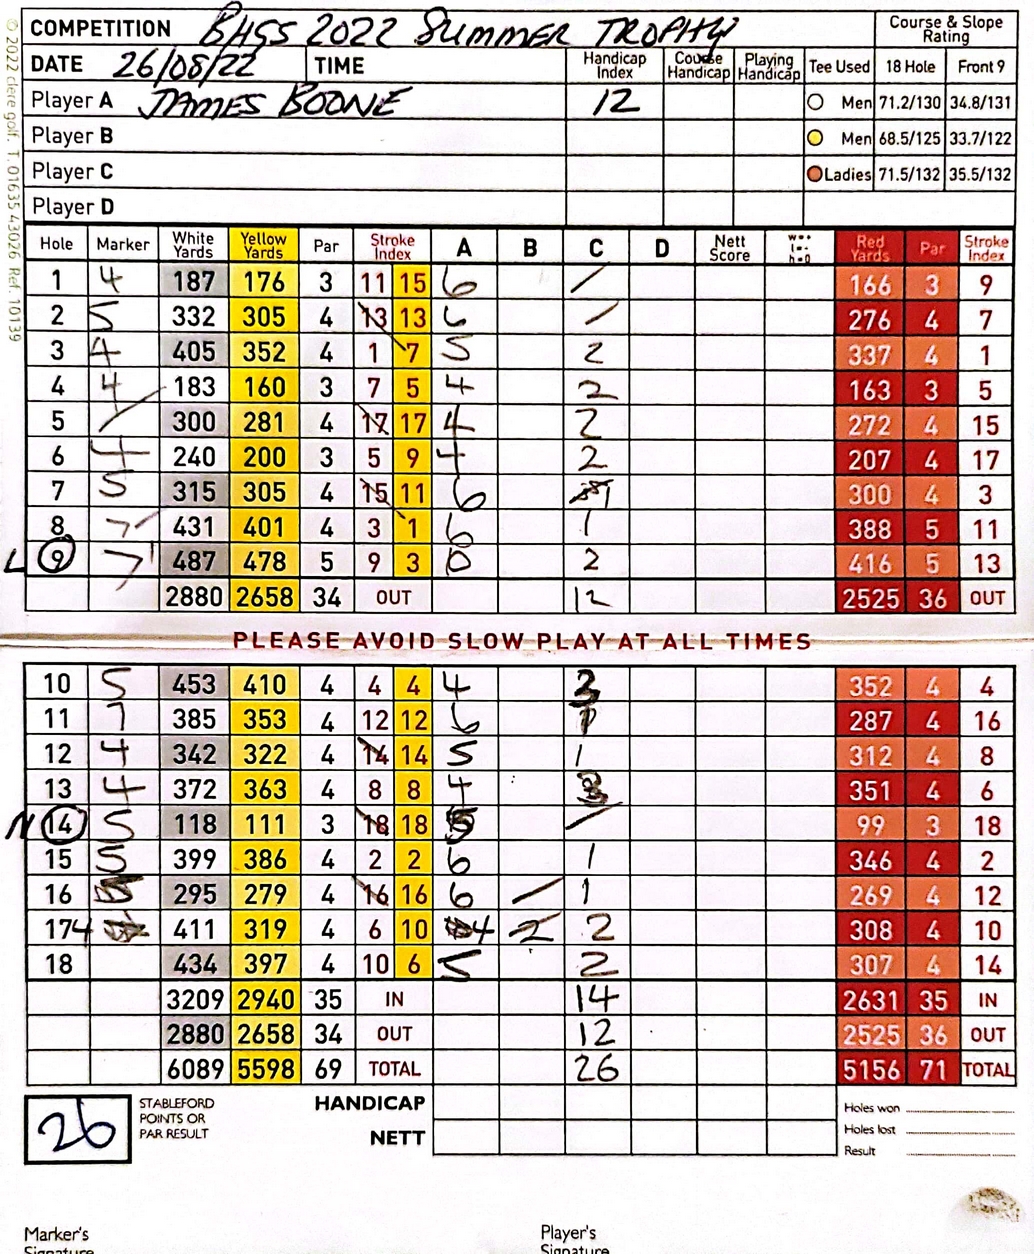 COMPETITION BHSS 2022 SUMMER TROPHY Course & Slope Rating
DATE 26/08/22 TIME Handicap Index Course Handicap Playing Handicap Tee Used 18 Hole Front 9
Player A JAMES BOONE 12 Men 71.2/130 34.8/131
Player B Men 68.5/125 33.7/122
Player C Ladies 71.5/132 35.5/132
Player D
© 2022 clere golf. T. 01635 43026 Ref. 10139
Hole Marker White Yards Yellow Yards Par Stroke Index A B C D Nett Score W=+ L=- H=0 Red Yards Par Stroke Index
1 4 187 176 3 11 15 6 / 166 3 9
2 5 332 305 4 13 13 6 / 276 4 7
3 4 405 352 4 1 7 5 2 337 4 1
4 4 183 160 3 7 5 4 2 163 3 5
5 / 300 281 4 17 17 4 2 272 4 15
6 4 240 200 3 5 9 4 2 207 4 17
7 5 315 305 4 15 11 6 1 300 4 3
8 7 431 401 4 3 1 6 1 388 5 11
L 9 7 487 478 5 9 3 2 416 5 13
2880 2658 34 OUT 12 2525 36 OUT
PLEASE AVOID SLOW PLAY AT ALL TIMES
10 5 453 410 4 4 4 4 3 352 4 4
11 7 385 353 4 12 12 6 1 287 4 16
12 4 342 322 4 14 14 5 1 312 4 8
13 4 372 363 4 8 8 4 3 351 4 6
N 14 5 118 111 3 18 18 5 / 99 3 18
15 5 399 386 4 2 2 6 1 346 4 2
16 5 295 279 4 16 16 6 / 1 269 4 12
17 4 411 319 4 6 10 4 2 2 308 4 10
18 434 397 4 10 6 5 2 307 4 14
3209 2940 35 IN 14 2631 35 IN
2880 2658 34 OUT 12 2525 36 OUT
6089 5598 69 TOTAL 26 5156 71 TOTAL
26 STABLEFORD POINTS OR PAR RESULT HANDICAP Holes won
NETT Holes lost
Result
Marker's Signature Player's Signature